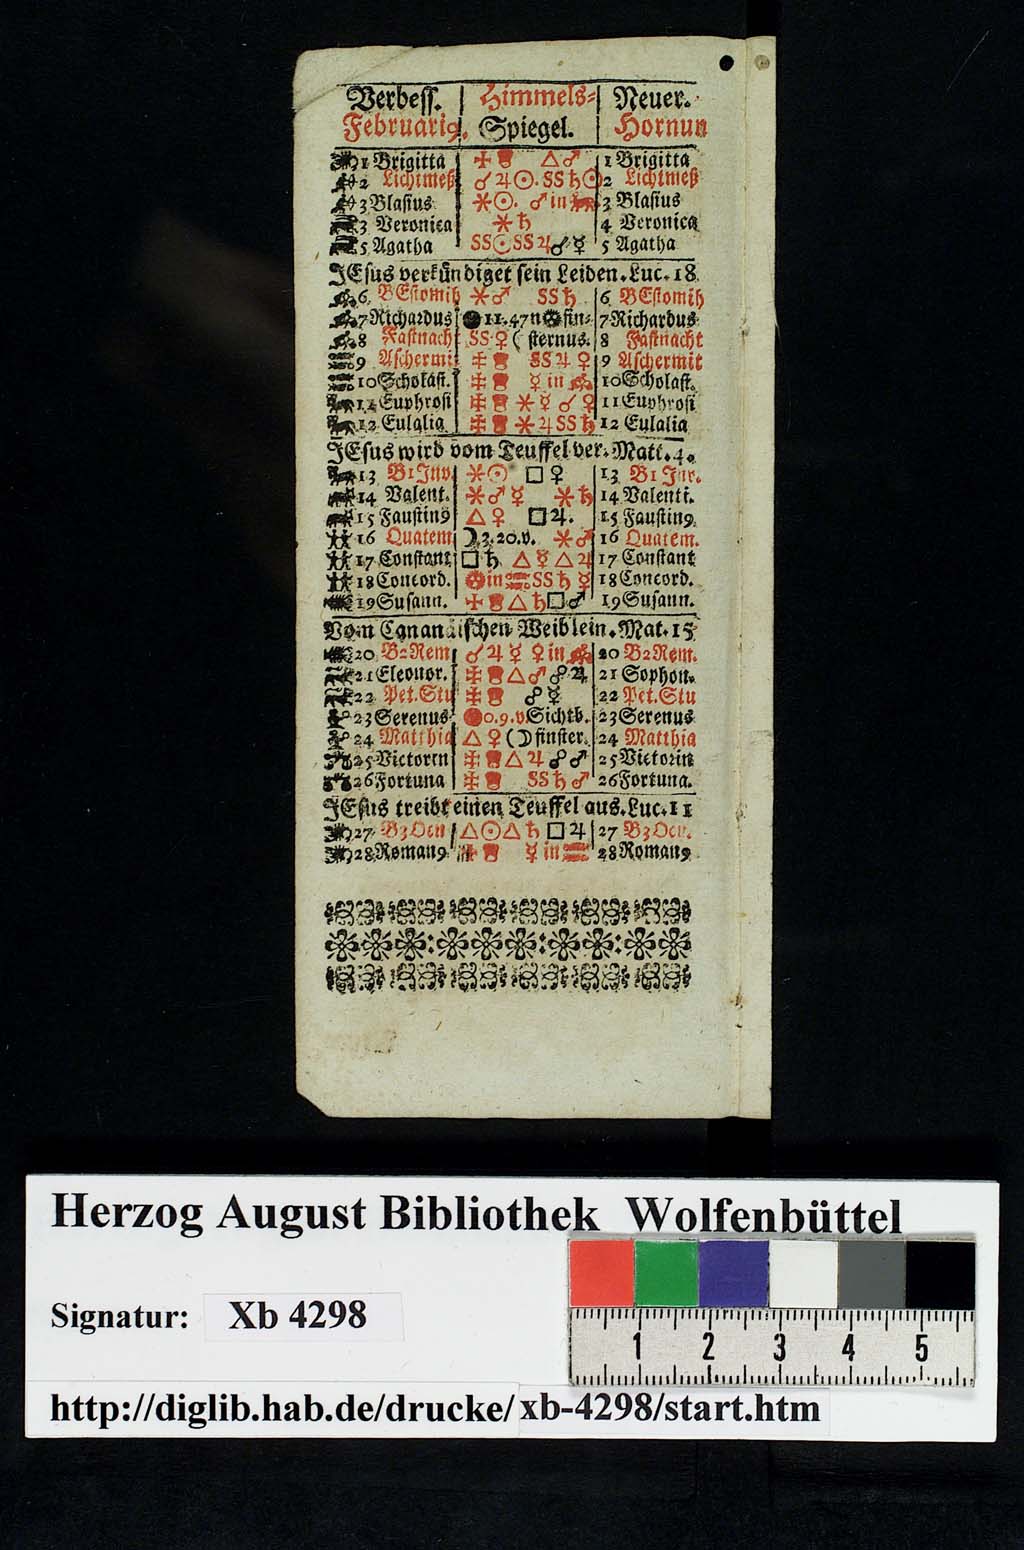 Verbeſſ. Himmels= Neuer.
Februari9. Spiegel. Hornun
1 Brigitta ✠ △ ♂ 1 Brigitta
2 Lichtmeß ☌ ♃ ☉. SS ♄ ☉ 2 Lichtmeß
3 Blaſius ⚹ ☉. ♂ in 3 Blaſius
3 Veronica ⚹ ♄ 4 Veronica
5 Agatha SS ☉ SS ♃ ☍ ☿ 5 Agatha
JEſus verkündiget ſein Leiden. Luc. 18
6 BEſtomih ⚹ ♂ SS ♄ 6 BEſtomih
7 Richardus ● 11. 47 n ſin= 7 Richardus
8 Faſtnach SS ♀ ( ſternus. 8 Faſtnacht
9 Aſchermi ✠ SS ♃ ♀ 9 Aſchermit
10 Scholaſt. ✠ ☿ in 10 Scholaſt.
11 Euphroſi ✠ ⚹ ☿ ☌ ♀ 11 Euphroſi
12 Eulalia ✠ ⚹ ♃ SS ♄ 12 Eulalia
JEſus wird vom Teuffel ver. Matt. 4.
13 B1 Inv. ⚹ ☉ □ ♀ 13 B1 Inv.
14 Valent. ⚹ ♂ ☿ ⚹ ♄ 14 Valenti.
15 Fauſtin9 △ ♀ □ ♃. 15 Fauſtin9
16 Quatem ☽ 3. 20. v. ⚹ ♂ 16 Quatem.
17 Conſtant □ ♄ △ ☿ △ ♃ 17 Conſtant
18 Concord. in SS ♄ ☿ 18 Concord.
19 Suſann. ✠ △ ♄ □ ♂ 19 Suſann.
Vom Cananäiſchen Weiblein. Mat. 15
20 B2 Rem ☌ ♃ ☿ ♀ in 20 B2 Rem.
21 Eleonor. ✠ △ ♂ ☍ ♃ 21 Sophon.
22 Pet. Stu ✠ ☍ ☿ 22 Pet. Stu
23 Serenus ● 0. 9. v. Sichtb. 23 Serenus
24 Matthia △ ♀ (☽ finſter. 24 Matthia
25 Victorin ✠ △ ♃ ☍ ♂ 25 Victorin
26 Fortuna ✠ SS ♂ 26 Fortuna.
JEſus treibt einen Teuffel aus. Luc. 11
27 B3 Ocu △ ☉ △ ♄ □ ♃ 27 B3 Ocu.
28 Roman9 ☿ in 28 Roman9
Herzog August Bibliothek Wolfenbüttel
Signatur: Xb 4298
1 2 3 4 5
http://diglib.hab.de/drucke/xb-4298/start.htm